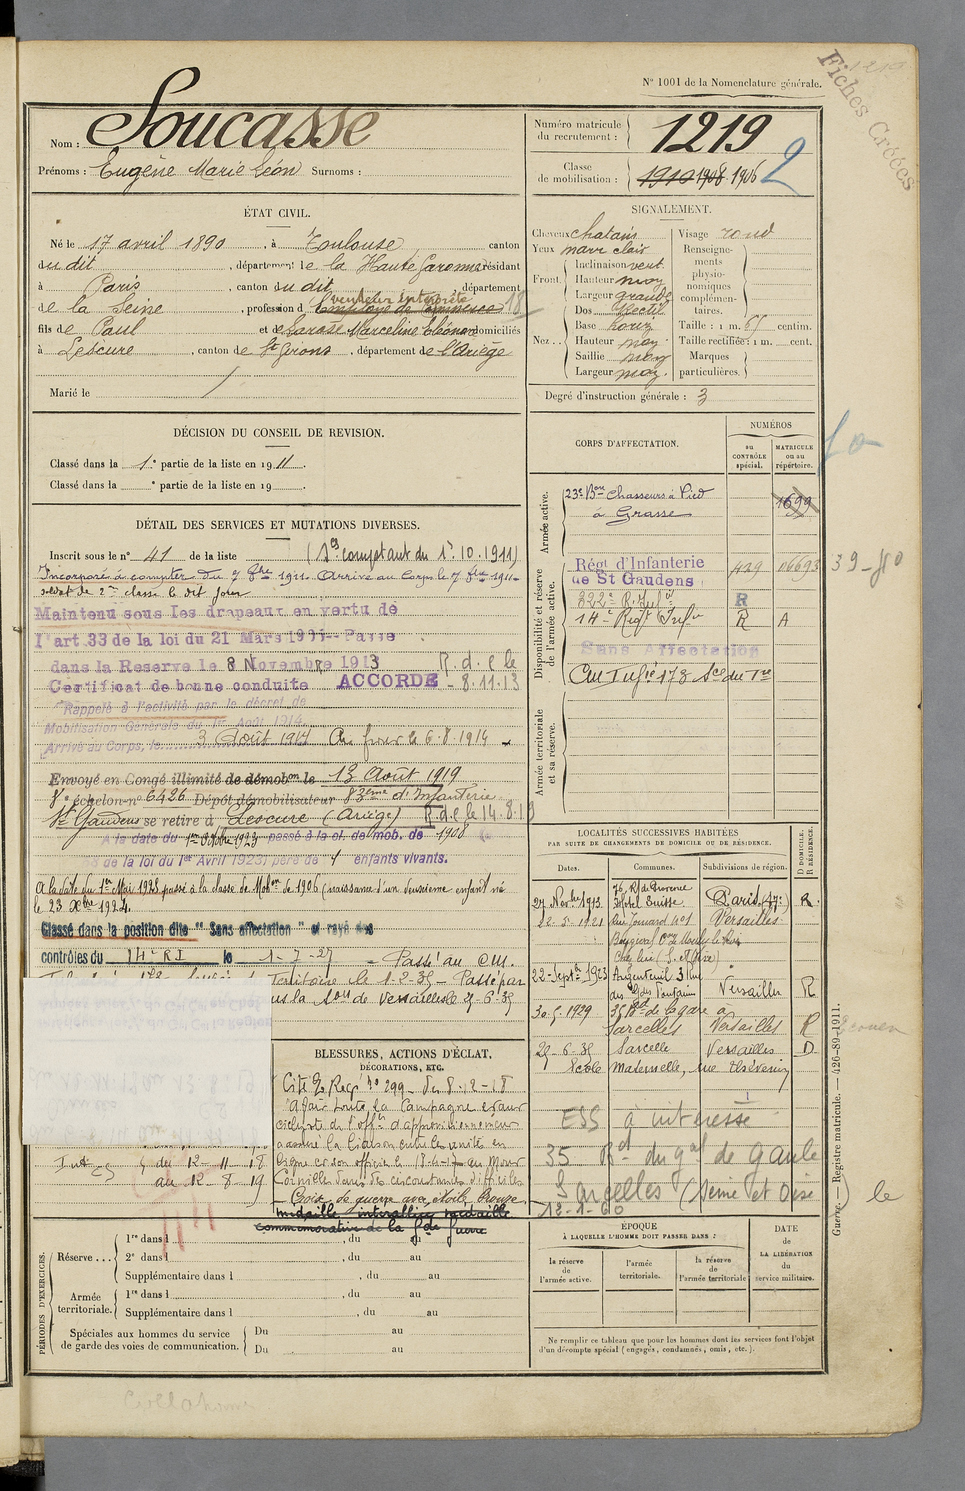 N° 1001 de la Nomenclature générale.
Fiches Créées
1219
Nom : Soucasse
Prénoms : Eugène Marie Léon Surnoms :
Numéro matricule du recrutement : 1219
Classe de mobilisation : 1910 1908 1906 2
ÉTAT CIVIL.
Né le 17 avril 1890, à Toulouse canton
du dit, département de la Haute Garonne résidant
à Paris, canton du dit département
vendeur interprète
de la Seine, profession d' Employé de Commerce 18
fils de Paul et de Marceline Eléonore domiciliés
à Lescure, canton de St Girons, département de l'Ariège
Marié le
SIGNALEMENT.
Cheveux chatain
Yeux marr clair
Front Inclinaison vert.
Hauteur moy
Largeur grande
Nez Dos Rectil
Base horiz
Hauteur moy.
Saillie moy
Largeur moy.
Visage rond
Renseignements physionomiques complémentaires.
Taille : 1 m. 65 centim.
Taille rectifiée : 1 m. cent.
Marques particulières.
Degré d'instruction générale : 3
DÉCISION DU CONSEIL DE REVISION.
Classé dans la 1e partie de la liste en 1911.
Classé dans la e partie de la liste en 19
DÉTAIL DES SERVICES ET MUTATIONS DIVERSES.
Inscrit sous le n° 41 de la liste (Sce comptant du 1er.10.1911)
Incorporé à compter du 7 8bre 1911. Arrivé au Corps le 7 8bre 1911.
soldat de 2me classe le dit jour
Maintenu sous les drapeaux en vertu de
l'art 33 de la loi du 21 Mars 1905 - Passé
dans la Reserve le 8 Novembre 1913 R.d.c le
Certificat de bonne conduite ACCORDÉ - 8.11.13
Rappelé à l'activité par le décret de
Mobilisation Générale du 1er Août 1914.
Arrivé au Corps, le 3 Août 1914
Envoyé en Congé illimité de démobon le 13 Août 1919
échelon n° 6426 Dépôt démobilisateur 83ème d'Infanterie
St Gaudens se retire à Lescure (Ariège) R.d.c le 14.8.19
A la date du 1er Octobre 1923 passé à la cl. de mob. de 1908
de la loi du 1er Avril 1923) père de 1 enfants vivants.
A la date du 1er Mai 1925 passé à la classe de Mobon de 1906 (naissance d'un deuxième enfant né
le 23 Xbre 1924.
Classé dans la position dite " Sans affectation " et rayé des
contrôles du 14e RI le 1-7-27 - Passé au CM.
Territoire le 1-2-35 - Passé par
de Versailles le 25-6-35
CORPS D'AFFECTATION.
NUMÉROS
au CONTRÔLE spécial.
MATRICULE ou au répertoire.
Armée active.
23e Bon Chasseurs à Pied
à Grasse
1699
Disponibilité et réserve de l'armée active.
Régt d'Infanterie
de St Gaudens
429 06693 39-40
R
14e Regt Infie R A
Sans Affectation
Armée territoriale et sa réserve.
LOCALITÉS SUCCESSIVES HABITÉES
PAR SUITE DE CHANGEMENTS DE DOMICILE OU DE RÉSIDENCE.
Dates. Communes. Subdivisions de région. D DOMICILE. R RÉSIDENCE.
27 Novbre 1913 76, R. de Provence
Hotel Suisse Paris R.
12.5.1921 Versailles
22 Septbre 1923 Argenteuil Versailles R
30.5.1929 35 Bd de la gare à
Sarcelles Versailles R
29-6-35 Sarcelle Versailles D
Ecole Maternelle, rue Thévenin
ESS à intéressé
35 Bd du gal de Gaule
Sarcelles (Seine et Oise) le
13-1-60
BLESSURES, ACTIONS D'ÉCLAT,
DÉCORATIONS, ETC.
Cité R. Reg. No 299 - du 8-12-18
A fait toute la Campagne
a assuré la liaison
Croix de guerre avec étoile bronze
médaille interalliée médaille
commémorative de la gde guerre
du 12-11-18
au 12-8-19
PÉRIODES D'EXERCICES.
Réserve... 1re dans l , du au
2e dans l , du au
Supplémentaire dans l , du au
Armée territoriale. 1re dans l , du au
Supplémentaire dans l , du au
Spéciales aux hommes du service de garde des voies de communication. Du au
Du au
ÉPOQUE
À LAQUELLE L'HOMME DOIT PASSER DANS :
la réserve de l'armée active.
l'armée territoriale.
la réserve de l'armée territoriale
DATE de LA LIBÉRATION du service militaire.
Ne remplir ce tableau que pour les hommes dont les services font l'objet
d'un décompte spécial (engagés, condamnés, omis, etc.).
Guerre. — Registre matricule. — 426-89-1911.